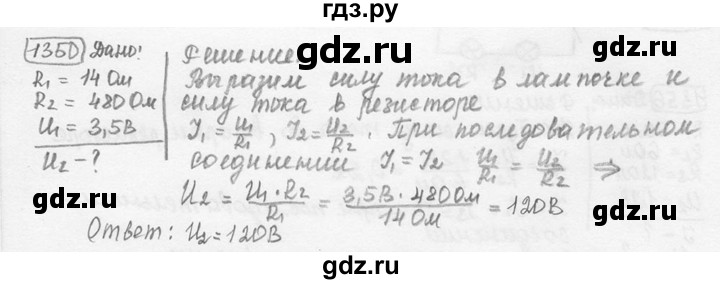 гдз.ру
1350 Дано:
R₁ = 14 Ом
R₂ = 480 Ом
U₁ = 3,5В
U₂ - ?
Решение
Выразим силу тока в лампочке и
силу тока в резисторе
I₁ = U₁/R₁, I₂ = U₂/R₂. При последовательном
соединении I₁ = I₂ U₁/R₁ = U₂/R₂ ⇒
U₂ = U₁ · R₂/R₁ = 3,5В · 480 Ом/14 Ом = 120В
Ответ: U₂ = 120В
gdz.ru
gdz.ru
gdz.ru